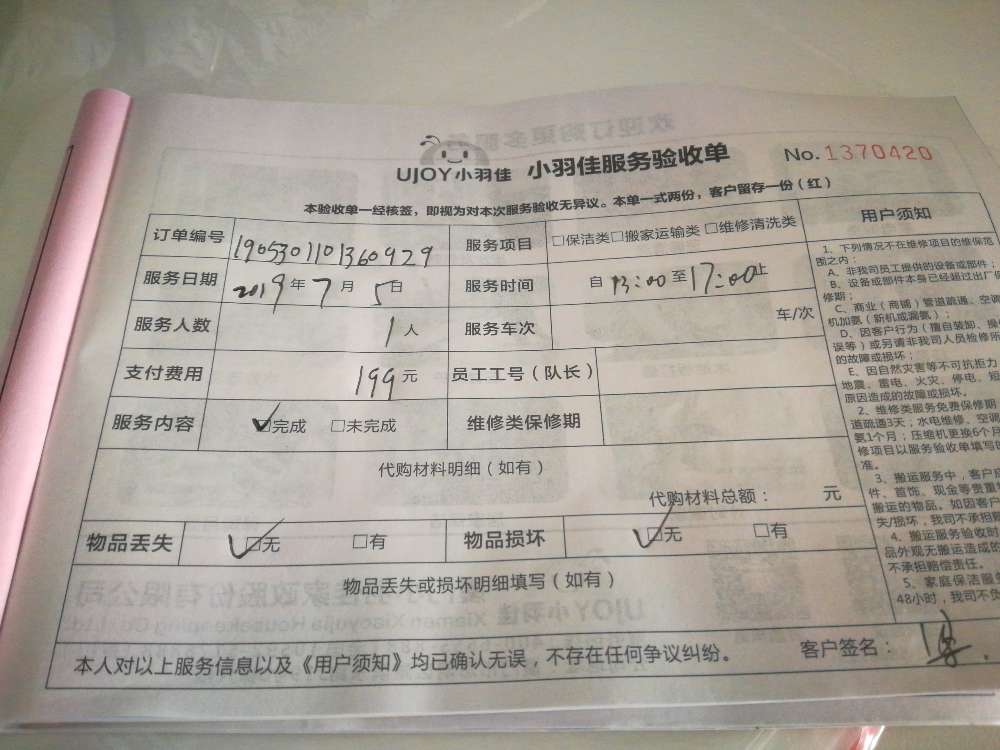 UJOY小羽佳 小羽佳服务验收单 No. 1370420
本验收单一经核签，即视为对本次服务验收无异议。本单一式两份，客户留存一份（红）
订单编号 1905301101360929 服务项目 □保洁类□搬家运输类□维修清洗类
服务日期 2019年7月5日 服务时间 自13:00至17:00止
服务人数 1人 服务车次 车/次
支付费用 199元 员工工号（队长）
服务内容 ☑完成 □未完成 维修类保修期
代购材料明细（如有）
代购材料总额： 元
物品丢失 ☑无 □有 物品损坏 ☑无 □有
物品丢失或损坏明细填写（如有）
本人对以上服务信息以及《用户须知》均已确认无误，不存在任何争议纠纷。 客户签名：
用户须知
1、下列情况不在维修项目的维保范
围之内：
A、非我司员工提供的设备或部件；
B、设备或部件本身已经超过出厂保
修期；
C、商业（商铺）管道疏通、空调
机加氨（新机或漏氨）；
D、因客户行为（擅自装卸、操
误等）或另请非我司人员检修所
的故障或损坏；
E、因自然灾害等不可抗拒力
地震、雷电、火灾、停电、短
原因造成的故障或损坏。
2、维修类服务免费保修期
道疏通3天；水电维修、空调
氨1个月；压缩机更换6个月
修项目以服务验收单填写的
准。
3、搬运服务中，客户应
件、首饰、现金等贵重
搬运的物品。如因客户
失/损坏，我司不承担赔
4、搬运服务验收时
品外观无搬运造成的
不承担赔偿责任。
5、家庭保洁服务
48小时，我司不负